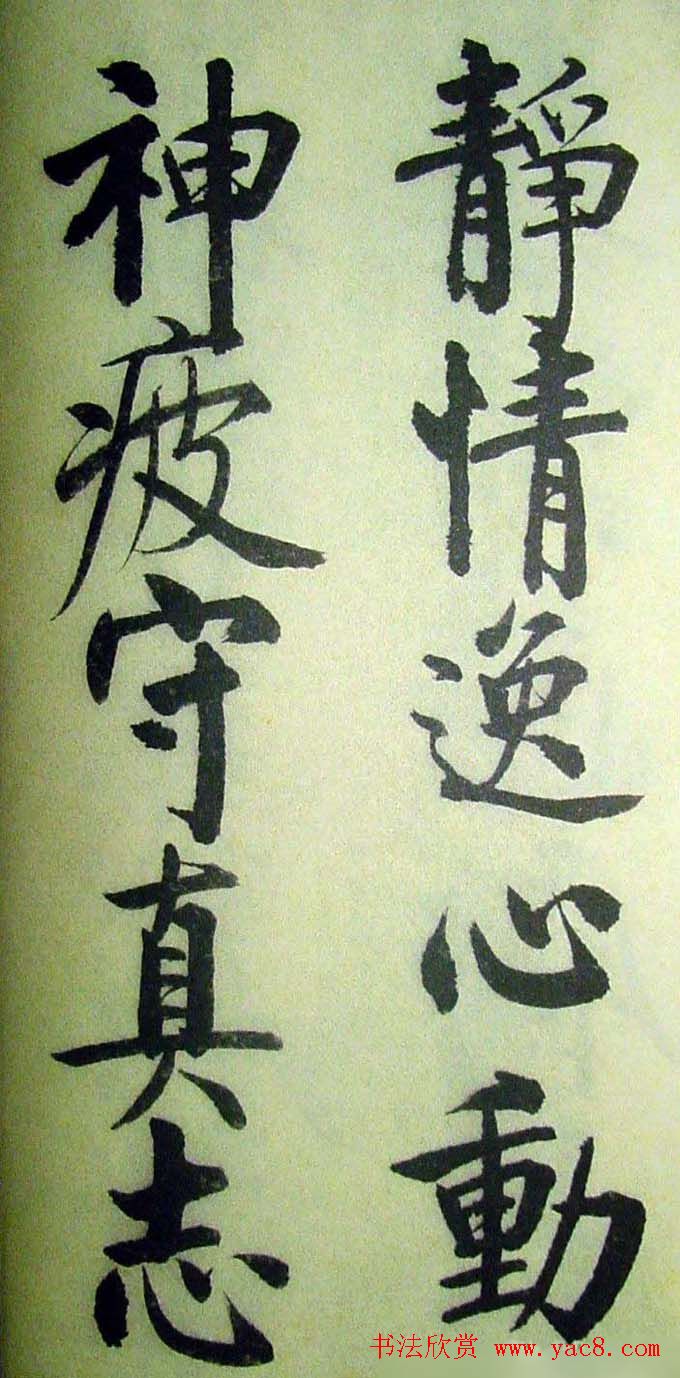 靜情逸心動
神疲守真志
书法欣赏 www.yac8.com